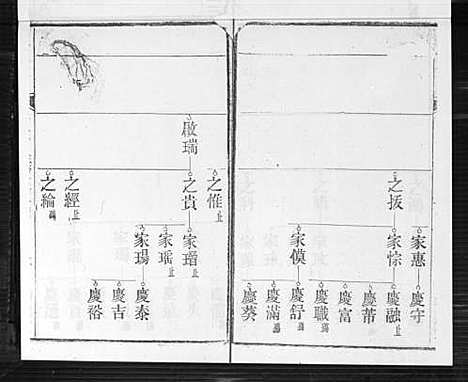 之
家惠
家悰
家
慶守
慶融止
慶芾
慶富
慶職
慶舒
慶滿
慶葵
啟瑞
之惟止
之貴
之經止
之綸
家瑨止
家瑤止
家瑒
慶泰
慶吉
慶裕